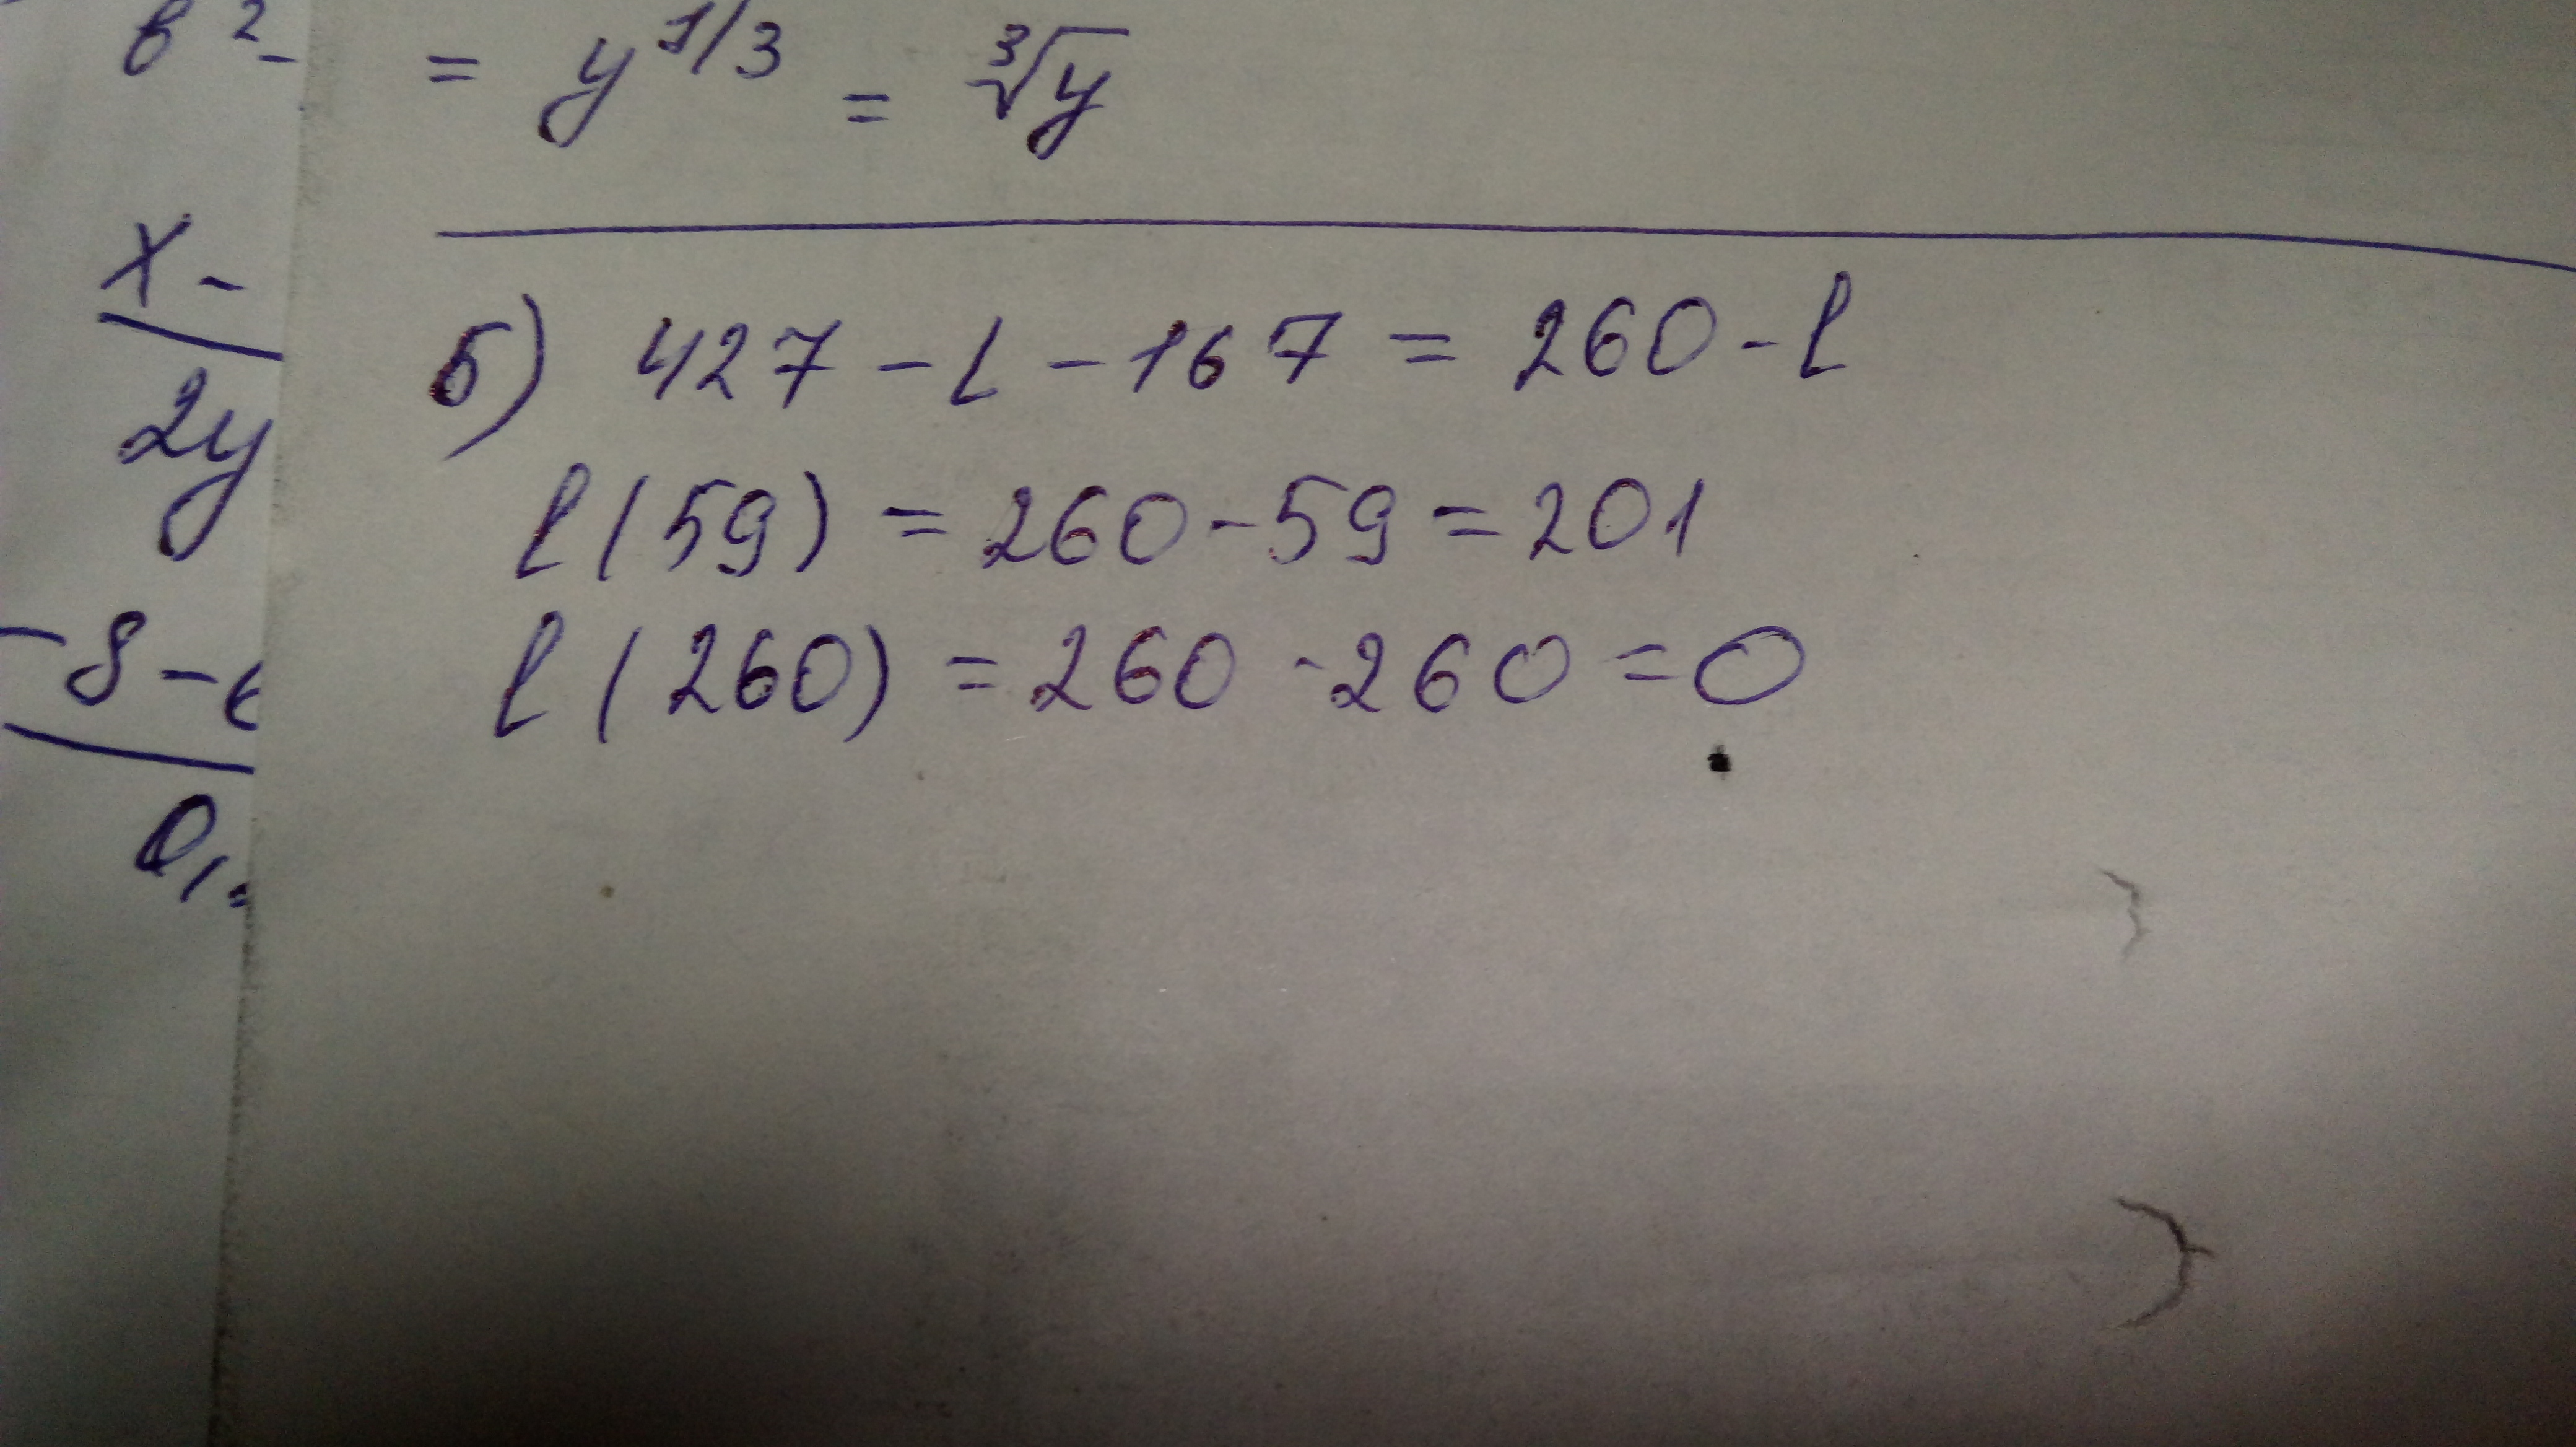 в² -
= y^1/3 = ∛y
x -
2y
- 8 -
0,
б) 427 - l - 167 = 260 - l
l (59) = 260 - 59 = 201
l (260) = 260 - 260 = 0